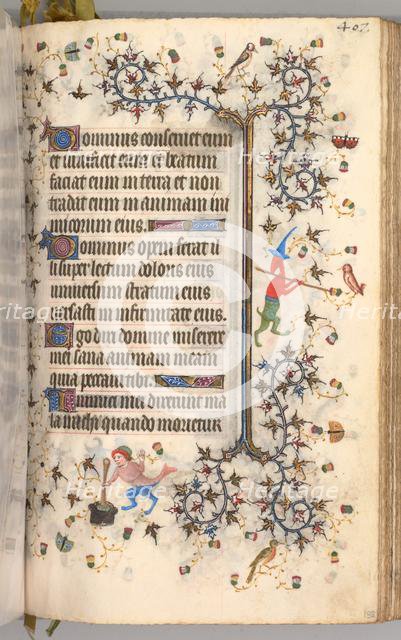 402
Dominus conseruet eum
et uiuificet eum et beatum
faciat eum in terra et non
tradat eum in animam ini
micorum eius.
Dominus opem ferat il
li super lectum doloris eius
uniuersum stratum eius
uersasti in infirmitate eius.
Ego dixi domine miserere
mei sana animam meam
quia peccaui tibi.
Inimici mei dixerunt ma
la michi quando morietur
Heritage
Heritage
Heritage
Heritage
Heritage